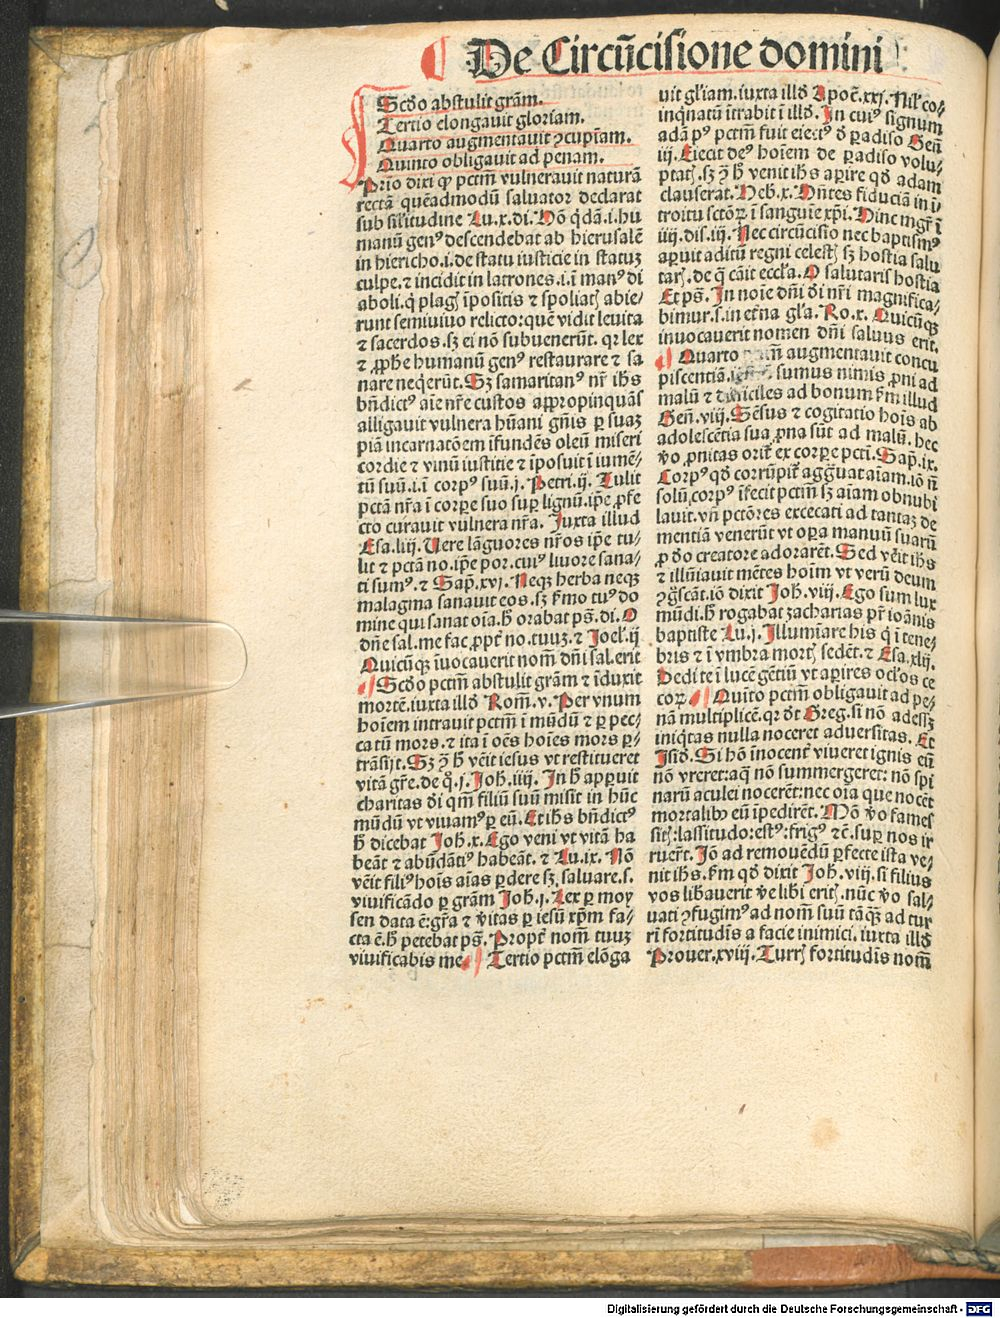 De Circūcisione domini
Scd̄o abstulit grām.
Tertio elongauit gloriam.
Quarto augmentauit ꝯcupīam.
Quinto obligauit ad penam.
Prīo dixi ꝙ pctm̄ vulnerauit naturā
rectā quēadmodū saluator declarat
sub sil'itudine Lu.x.di. Hō q̇dā.i.hu
manū genꝰ descendebat ab hierusalē
in hiericho.i.de statu iusticie in statuꝫ
culpe.⁊ incidit in latrones.i.ī manꝰ di
aboli.q̇ plagꝭ īpositis ⁊ spoliatꝭ abie-
runt semiuiuo relicto:quē vidit leuita
⁊ sacerdos.sꝫ ei nō subuenerūt. qꝛ lex
⁊ ꝓph̄e humanū genꝰ restaurare ⁊ sa
nare neq̇erūt. Sꝫ samaritanꝰ nr̄ ih̄s
bn̄dictꝰ aīe nr̄e custos appropinquās
alligauit vulnera hūani gn̄is ꝑ suaꝫ
piā incarnatōem īfundēs oleū miseri
cordie ⁊ vinū iustitie ⁊ īposuit ī iumē-
tū suū.i.ī corpꝰ suū.j. Petri.ij. Tulit
pctā nr̄a ī corꝑe suo suꝑ lignū.ip̄e ꝓfe
cto curauit vulnera nr̄a. Juxta illud
Esa.liij. Uere lāguores nr̄os ip̄e tu-
lit ⁊ pctā no.ip̄e por.cuiꝰ liuore sana-
ti sumꝰ. ⁊ Sap̄.xvj. Neqꝫ herba neqꝫ
malagma sanauit eos.sꝫ ẜmo tuꝰ do
mine qui sanat oīa.h̄ orabat ps̄.di. O
dn̄e sal.me fac,ꝓpt̄ no.tuuꝫ.⁊ Joel'.ij
Quicūqꝫ īuocauerit nom̄ dn̄i sal.erit
Scd̄o pctm̄ abstulit grām ⁊ īduxit
mortē.iuxta illd̄ Rom̄.v. Per vnum
hoīem intrauit pctm̄ ī mūdū ⁊ ꝑ pec-
catū mors.⁊ ita ī oēs hoīes mors ꝑ-
trāsijt. Sꝫ ꝓ h̄ vēit iesus vt restitueret
vitā gr̄e.de q̊.j. Joh̄.iiij. In h̄ apparuit
charitas di qm̄ filiū suū misit in hūc
mūdū vt viuamꝰ ꝑ eū. Et ih̄s bn̄dictꝰ
h̄ dicebat Joh̄.x. Ego veni vt vitā ha
beāt ⁊ abūdātiꝰ habeāt. ⁊ Lu.ix. Nō
vēit filiꝰ hoīs aīas ꝑdere sꝫ saluare.s.
viuificādo ꝑ grām Joh̄.j. Lex ꝑ moy
sen data ē:gr̄a ⁊ v̄itas ꝑ iesū xp̄m fa-
cta ē.h̄ petebat ps̄. Propt̄ nom̄ tuuꝫ
viuificabis me. Tertio pctm̄ elōga
uit gl'iam.iuxta illd̄ Apoc̄.xxj. Nil' co-
inq̇natū ītrabit ī illd̄. In cuiꝰ signum
adā pꝰ pctm̄ fuit eiectꝰ d̄ ꝑadiso Gen̄
iij. Eiecit deꝰ hoīem de ꝑadiso volu-
ptatꝭ. sꝫ ꝓ h̄ venit ih̄s aꝑire qd̄ adam
clauserat. Heb̄.x. Hn̄tes fiduciā in ī-
troitu sctōꝝ ī sanguīe xp̄i. Hinc mgr̄ ī
iiij.dis.iij. Nec circūcisio nec baptismꝰ
aꝑuit aditū regni celestꝭ sꝫ hostia salu
tarꝭ.de q̇ cāit eccl'a. O salutaris hostia
Et ps̄. In noīe dn̄i di nr̄i magnifica-
bimur.s.in et̄na gl'a. Ro.x. Quicūqꝫ
inuocauerit nomen dn̄i saluus erit.
Quarto augmentauit concu
piscentiā. sumus nimis ,ꝓni ad
malū ⁊ difficiles ad bonum ẜm illud
Gen̄.viij. Sēsus ⁊ cogitatio hoīs ab
adolescētia sua ,ꝓna sūt ad malū. hec
v̄o ,ꝓnitas orit̄ ex corꝑe pctī. Sap̄.ix.
Corpꝰ qd̄ corrūpit̄ aggrauat aīam.iō n̄
solū corpꝰ īfecit pctm̄ sꝫ aīam obnubi
lauit.vn̄ pctōres excecati ad tantaꝫ de
mentiā venerūt vt oꝑa manuū suarū
ꝓ d̄o creatore adorarēt. Sed vēit ih̄s
⁊ illūiauit mētes hoīm vt verū deum
ꝯgscāt.iō dixit Joh̄.viij. Ego sum lux
mūdi.h̄ rogabat zacharias pr̄ ioānis
baptiste Lu.j. Illumīare his q̇ ī tene-
bris ⁊ ī vmbra mortꝭ sedēt.⁊ Esa.xlij.
Dedi te ī lucē gētiū vt aꝑires ocl'os ce
coꝝ. Quīto pctm̄ obligauit ad pe-
nā multiplicē.qꝛ dt̄ Greg. si nō adessꝫ
iniq̇tas nulla noceret aduersitas. Et
Isid̄. Si hō īnocent̄ viueret ignis eū
nō vreret:aq̄ nō summergeret: nō spi
narū aculei nocerēt:nec oīa que nocēt
mortalibꝰ eū īpedirēt. Mō v̄o fames
sitꝭ:lassitudo:estꝰ:frigꝰ ⁊c̄.suꝑ nos ir
ruer̄t. Iō ad remouēdū ꝑfecte ista ve-
nit ih̄s. ẜm qd̄ dixit Joh̄.viij. si filius
vos libauerit v̄e libi eritꝭ.nūc v̄o sal-
uati ꝯfugimꝰ ad nom̄ suū tāqꝫ ad tur
rī fortitudīs a facie inimici. iuxta illd̄
Prouer.xviij. Turrꝭ fortitudis nom̄
Digitalisierung gefördert durch die Deutsche Forschungsgemeinschaft - DFG